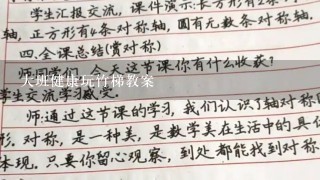 学生汇报交流，课件演示：长方形有2条对
轴，正方形有4条对称轴，圆有无数条对称轴.
四.全课总结(赏对称)
大班健康玩竹梯教案
今天这节课你有什么收获?
学生交流学习
师:通过这节课的学习，我们认识了轴对称
形.对称，是一种美，是数学美在生活中的具
体现.只要你留心观察，到处都能找到对称